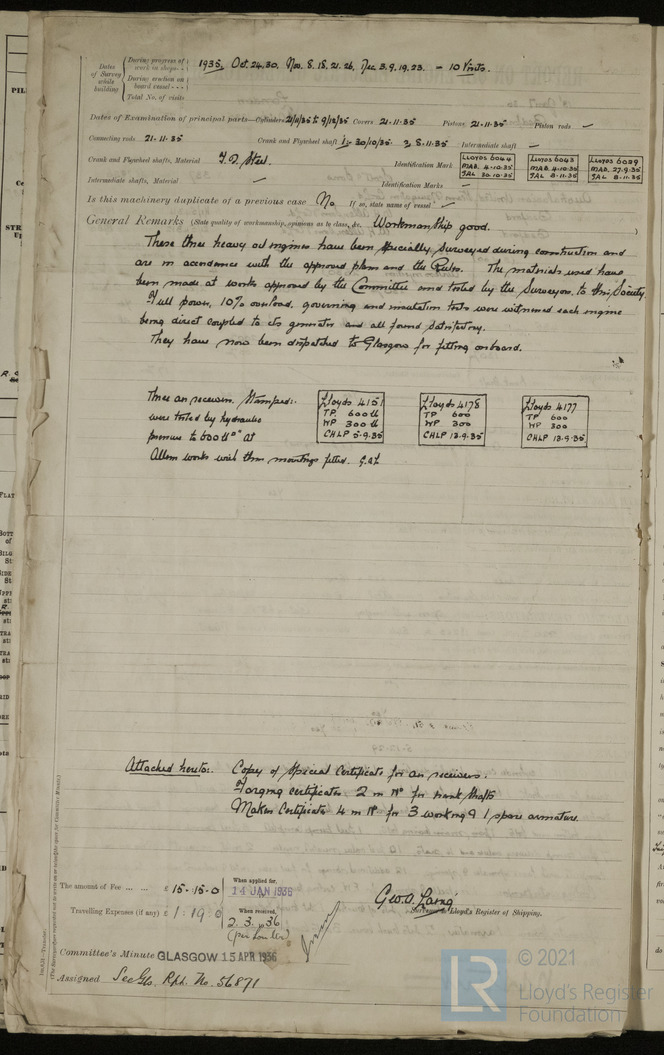 Dates of Survey while building
During progress of work in shops - -
1935. Oct. 24. 30. Nov. 8. 15. 21. 26. Dec 3. 9. 19. 23. - 10 Visits.
During erection on board vessel - - -
Total No. of visits
Dates of Examination of principal parts—Cylinders 21/11/35 to 9/12/35 Covers 21.11.35 Pistons 21.11.35 Piston rods —
Connecting rods 21.11.35 Crank and Flywheel shaft 30/10/35. 8.11.35 Intermediate shaft —
Crank and Flywheel shafts, Material Steel. Identification Mark
LLOYDS 6044
MAB. 4.10.35
GAL 30.10.35
LLOYDS 6043
MAB. 4.10.35
GAL 8.11.35
LLOYDS 6029
MAB. 27.9.35
GAL 8.11.35
Intermediate shafts, Material — Identification Marks —
Is this machinery duplicate of a previous case No If so, state name of vessel —
General Remarks (State quality of workmanship, opinions as to class, &c. Workmanship good.
These three heavy oil engines have been specially surveyed during construction and
are in accordance with the approved plans and the Rules. The materials used have
been made at works approved by the Committee and tested by the Surveyors to this Society.
Full power, 10% overload, governing and insulation tests were witnessed each engine
being direct coupled to its generator and all found satisfactory.
They have now been dispatched to Glasgow for fitting onboard.
Three air receivers. Stamped:.
were tested by hydraulic
pressure to 600 lb at
Allen works with their mountings fitted. GAL
Lloyds 4151
TP. 600 lb
WP 300 lb
CHLP 5.9.35
Lloyds 4178
TP 600
WP 300
CHLP 13.9.35
Lloyds 4177
TP 600
WP 300
CHLP 13.9.35
Attached hereto:. Copy of Special Certificate for air receivers.
Forging certificates 2 in No for crank shafts
Makers Certificate 4 in No for 3 working & 1 spare armature.
The amount of Fee ... ... £ 15.15.0
When applied for,
14 JAN 1936
Travelling Expenses (if any) £ 1.19.0
When received,
2.3.1936
Geo. A. Laing
Surveyor to Lloyd's Register of Shipping.
Committee's Minute GLASGOW 15 APR 1936
Assigned See Gls. Rpt. No. 56871
© 2021
Lloyd's Register
Foundation
LR